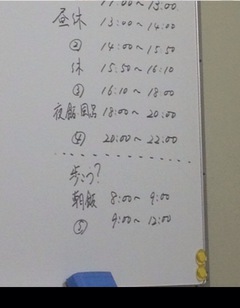 11:00~13:00
昼休 13:00~14:00
② 14:00~15:50
休 15:50~16:10
③ 16:10~18:00
夜飯・風呂 18:00~20:00
④ 20:00~22:00
朝飯 8:00~9:00
⑤ 9:00~12:00